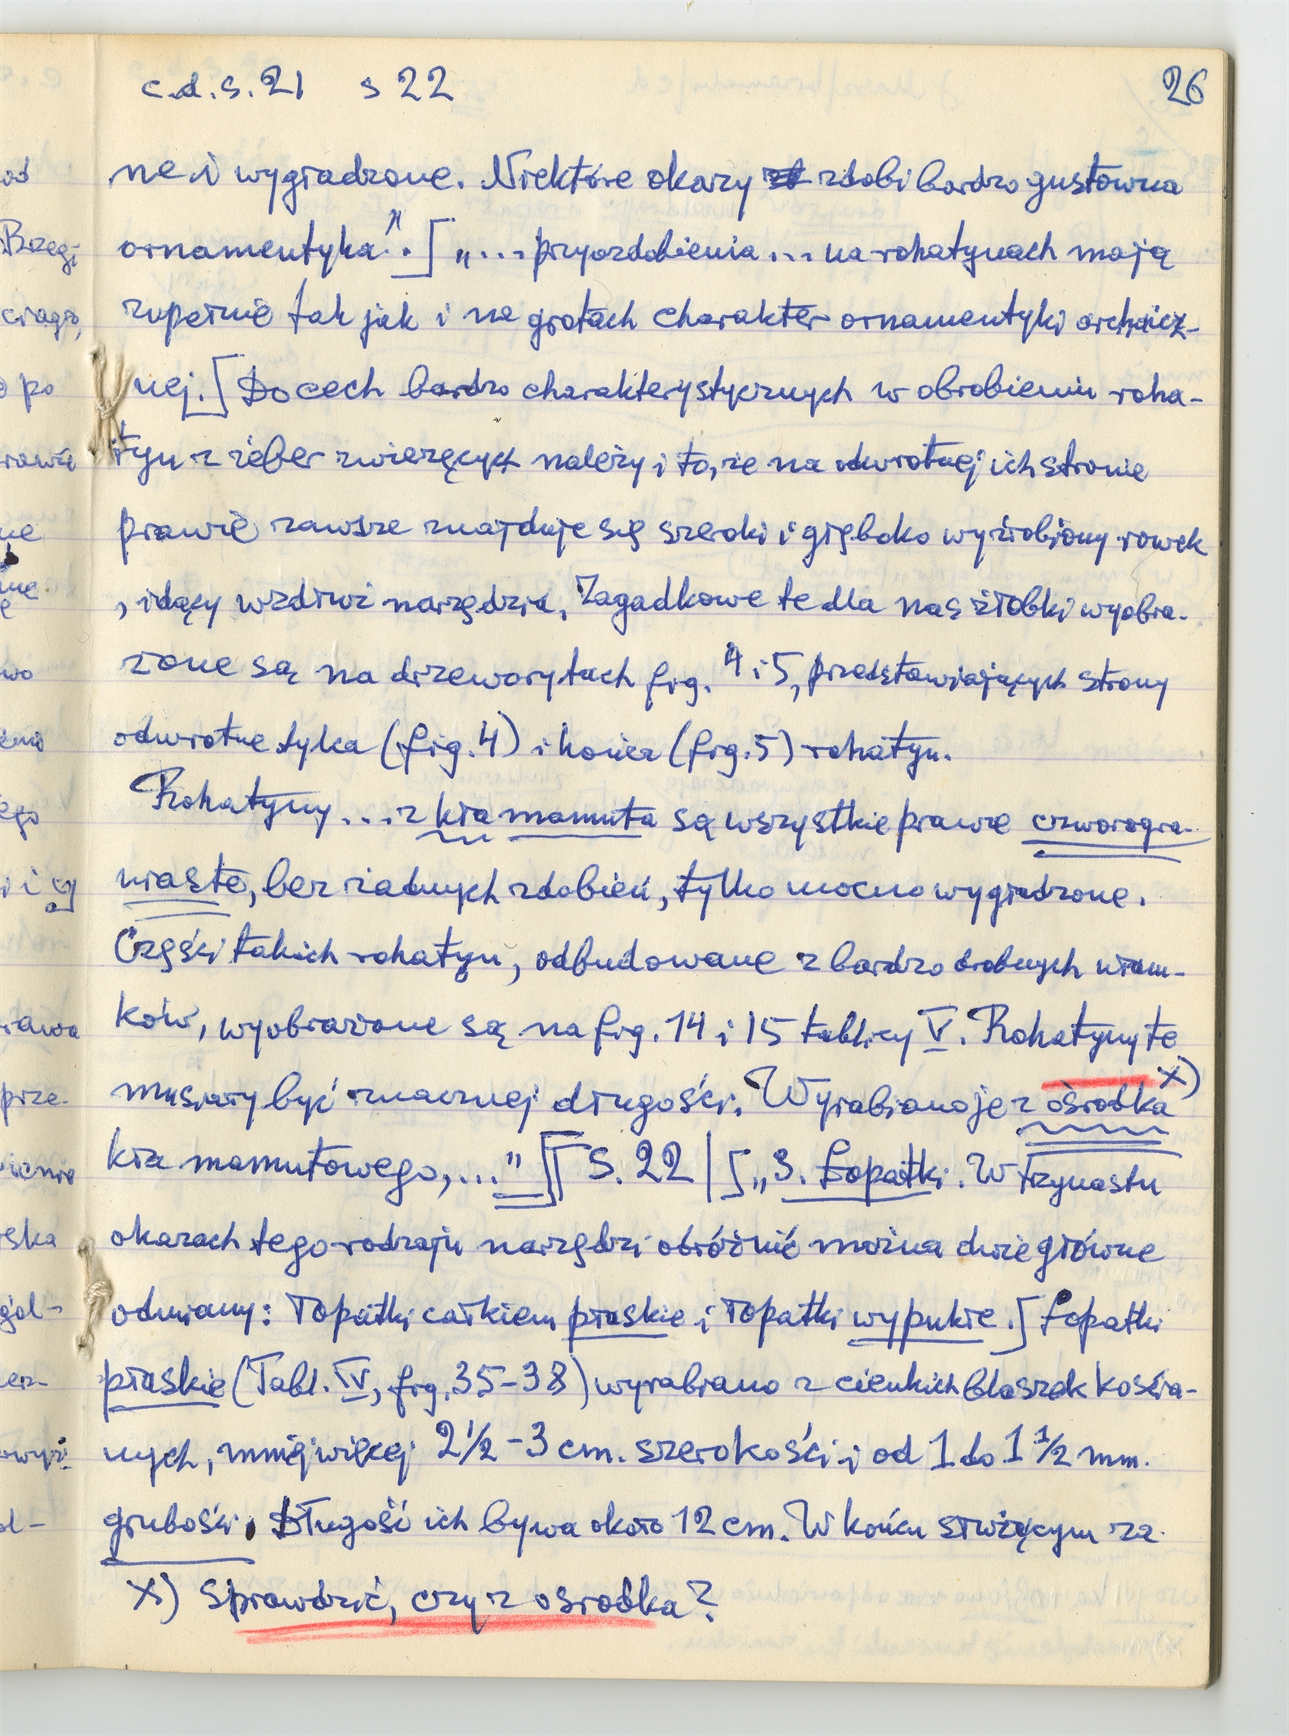 c.d.s.21 s 22
26
ne i wygładzone. Niektóre okazy zdobi bardzo gustowna
ornamentyka".] „... przyozdobienia ... na rohatynach mają
zupełnie tak jak i na grotach charakter ornamentyki archaicz-
nej.[Do cech bardzo charakterystycznych w obrobieniu roha-
tyn z żeber zwierzęcych należy i to, że na odwrotnej ich stronie
prawie zawsze znajduje się szeroki i głęboko wyżłobiony rowek
, idący wzdłuż narzędzia. Zagadkowe te dla nas żłobki wyobra-
żone są na drzeworytach fig. 4 i 5, przedstawiających strony
odwrotne tylca (fig. 4) i końca (fig. 5) rohatyn.
Rohatyny ... z kła mamuta są wszystkie prawie czworogra-
niaste, bez żadnych zdobień, tylko mocno wygładzone.
Części takich rohatyn, odbudowane z bardzo drobnych ułam-
ków, wyobrażone są na fig. 14 i 15 tablicy V. Rohatyny te
musiały być znacznej długości. Wyrabiano je z ośrodka x)
kła mamutowego, ..."]][S. 22|[„3. Łopatki. W trzynastu
okazach tego rodzaju narzędzi odróżnić można dwie główne
odmiany: łopatki całkiem płaskie i łopatki wypukłe.] Łopatki
płaskie (Tabl. IV, fig. 35-38) wyrabiano z cienkich blaszek kościa-
nych, mniej więcej 2 1/2 - 3 cm. szerokości i od 1 do 1 1/2 mm.
grubości. Długość ich bywa około 12 cm. W końcu służącym za
x) Sprawdzić, czy z ośrodka?